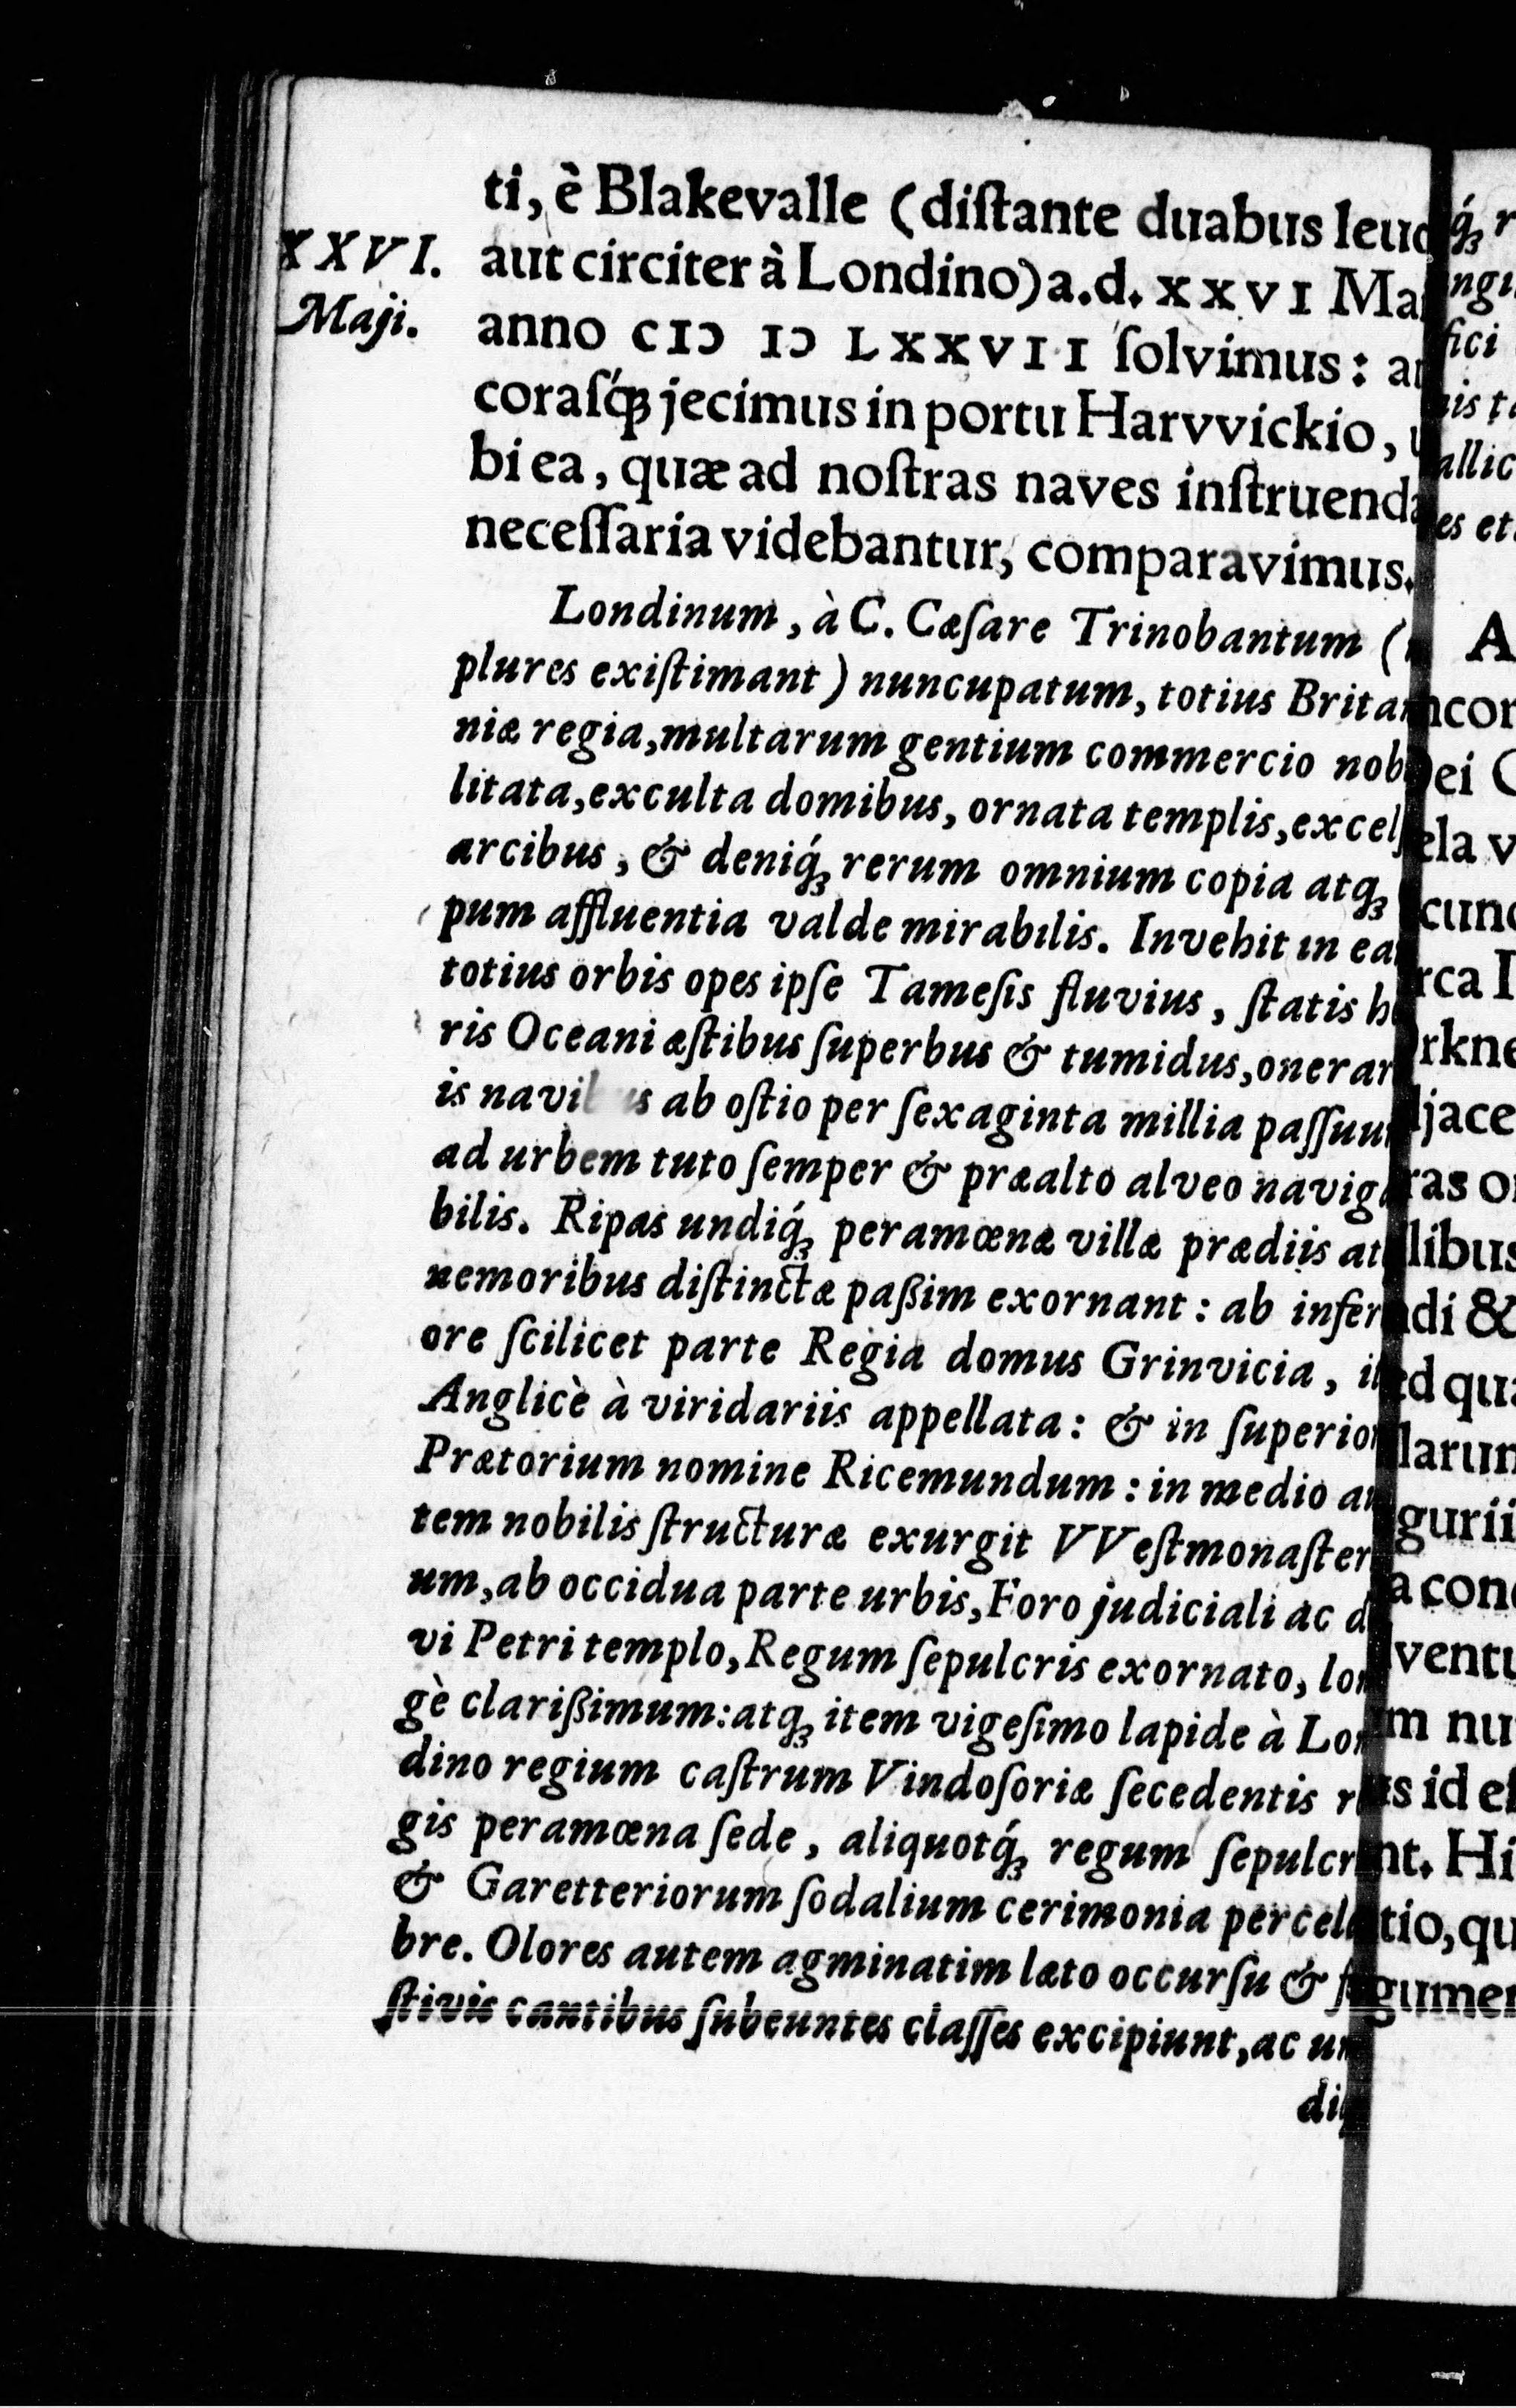 XXVI.
Maji.
ti, è Blakevalle (diſtante duabus leuc
aut circiter à Londino) a.d. XXVI Ma
anno CIↃ IↃ LXXVII ſolvimus: an
coraſq́ꝫ jecimus in portu Harvvickio, u
bi ea, quæ ad noſtras naves inſtruenda
neceſſaria videbantur, comparavimus.
Londinum, à C. Cæſare Trinobantum (
plures exiſtimant) nuncupatum, totius Britan
niæ regia, multarum gentium commercio nob
litata, exculta domibus, ornata templis, excelſ
arcibus, & deniq́ꝫ rerum omnium copia atqꝫ
pum affluentia valde mirabilis. Invehit in ea
totius orbis opes ipſe Tameſis fluvius, ſtatis h
ris Oceani æſtibus ſuperbus & tumidus, onerar
is navibus ab oſtio per ſexaginta millia paſſuum
ad urbem tuto ſemper & præalto alveo naviga
bilis. Ripas undiq́ꝫ peramœnæ villæ prædiis at
nemoribus diſtinctæ paßim exornant: ab inferi
ore ſcilicet parte Regia domus Grinvicia, it
Anglicè à viridariis appellata: & in ſuperior
Prætorium nomine Ricemundum: in medio au
tem nobilis ſtructuræ exurgit VVeſtmonaſter
um, ab occidua parte urbis, Foro judiciali ac d
vi Petri templo, Regum ſepulcris exornato, lon
gè clarißimum: atqꝫ item vigeſimo lapide à Lon
dino regium caſtrum Vindoſoriæ ſecedentis r
gis peramœna ſede, aliquotq́ꝫ regum ſepulcr
& Garetteriorum ſodalium cerimonia percele
bre. Olores autem agminatim læto occurſu & fe
ſtivis cantibus ſubeuntes claſſes excipiunt, ac un
diq
q́ꝫ r
ngu
fici
nis ta
allic
es et
A
ncor
Dei C
ela v
cund
rca I
rkne
djace
ras o
libus
ndi &
ed qua
larum
gurii
a conc
ventu
m nu
us id eſ
nt. Hi
tio, qu
gumen